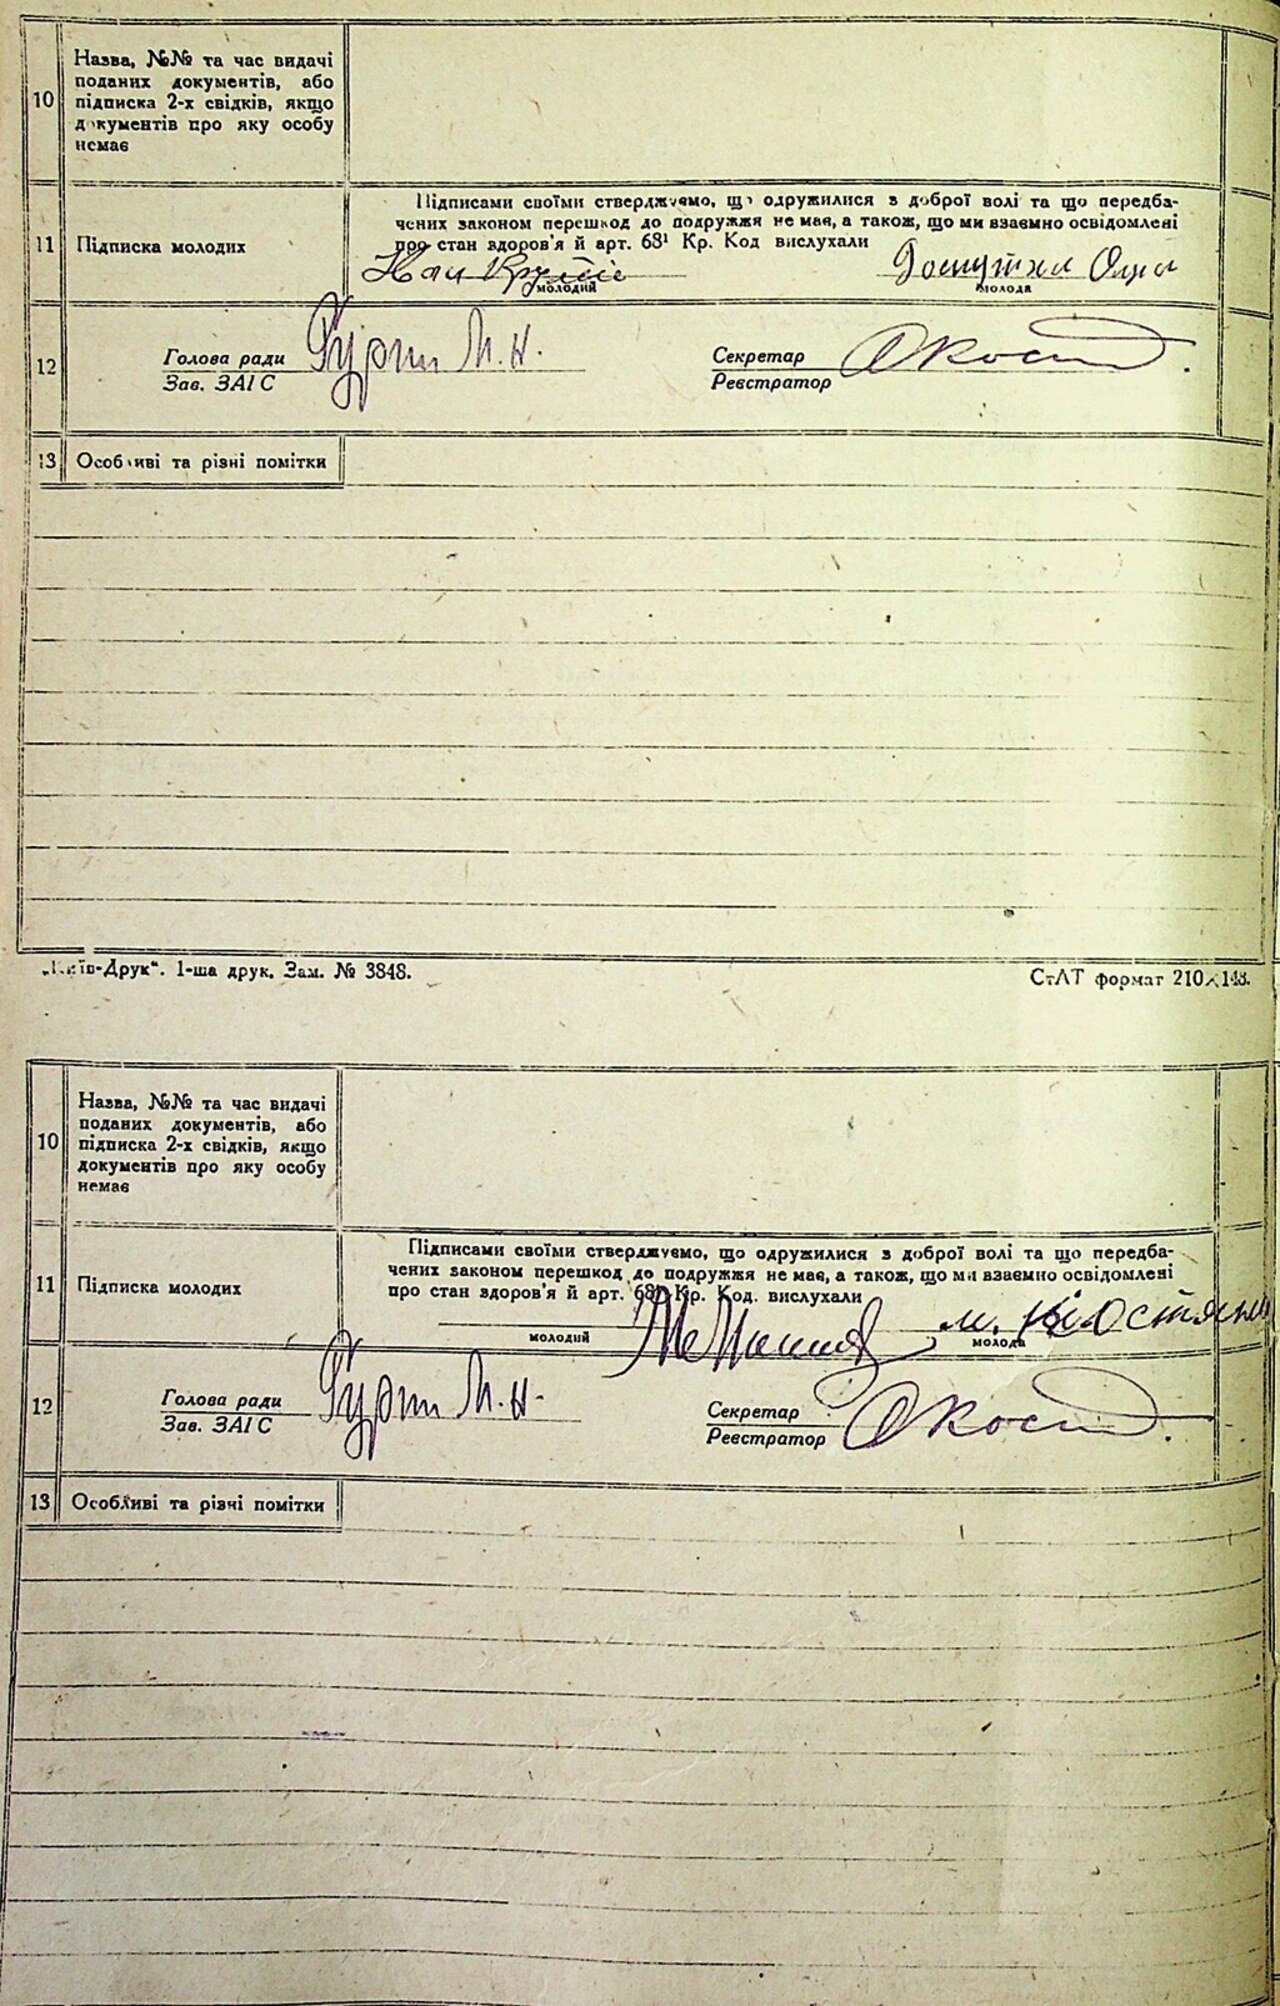 10
Назва, №№ та час видачі
поданих документів, або
підписка 2-х свідків, якщо
документів про яку особу
немає
11
Підписка молодих
Підписами своїми стверджуємо, що одружилися з доброї волі та що передба-
чених законом перешкод до подружжя не має, а також, що ми взаємно освідомлені
про стан здоров'я й арт. 68¹ Кр. Код вислухали
молодий
молода
12
Голова ради
Зав. ЗАГС
М. Н.
Секретар
Реєстратор
13
Особливі та різні помітки
„Київ-Друк“. 1-ша друк. Зам. № 3848.
СтАТ формат 210×148.
10
Назва, №№ та час видачі
поданих документів, або
підписка 2-х свідків, якщо
документів про яку особу
немає
11
Підписка молодих
Підписами своїми стверджуємо, що одружилися з доброї волі та що передба-
чених законом перешкод до подружжя не має, а також, що ми взаємно освідомлені
про стан здоров'я й арт. 68¹ Кр. Код. вислухали
молодий
молода
12
Голова ради
Зав. ЗАГС
М. Н.
Секретар
Реєстратор
13
Особливі та різні помітки